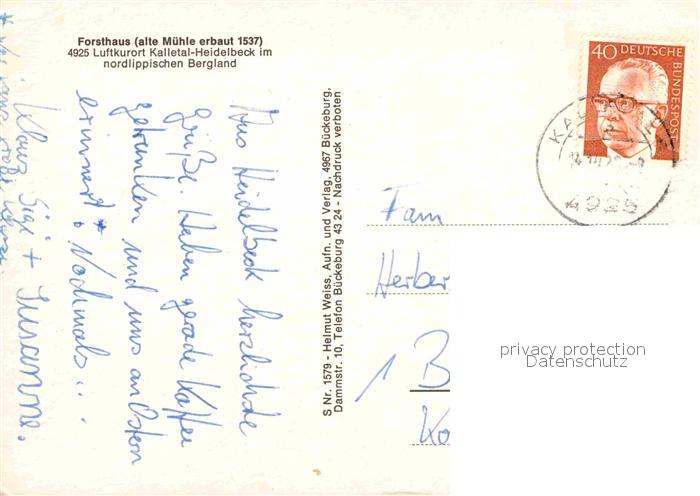 Forsthaus (alte Mühle erbaut 1537)
4925 Luftkurort Kalletal-Heidelbeck im
nordlippischen Bergland
Aus Heidelbeck herzlichste
Grüße. Haben gerade Kaffee
getrunken und uns an Ostern
erinnert * Nochmals...
Klaus Sigi + Susanne.
S Nr. 1579 - Helmut Weiss, Aufn. und Verlag, 4967 Bückeburg,
Dammstr. 10, Telefon Bückeburg 43 24 - Nachdruck verboten
40 DEUTSCHE
BUNDESPOST
4925
Fam
Herber
1 B
Ko
privacy protection
Datenschutz